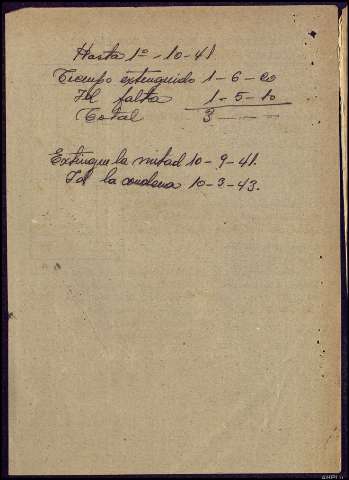 Hasta 1º - 10 - 41
Tiempo extinguido 1 - 6 - 20
Id falta 1 - 5 - 10
Total 3 - - -
Extingue la mitad 10 - 9 - 41.
Id la condena 10 - 3 - 43.